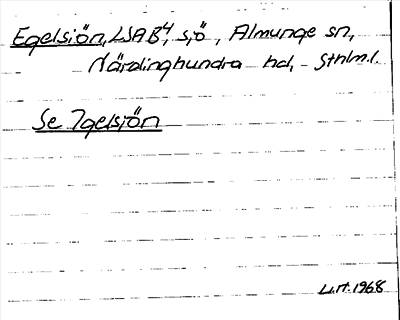 Egelsjön, LSAB4, sjö, Almunge sn,
Närdinghundra hd, Sthlm.l.
Se Igelsjön
1968